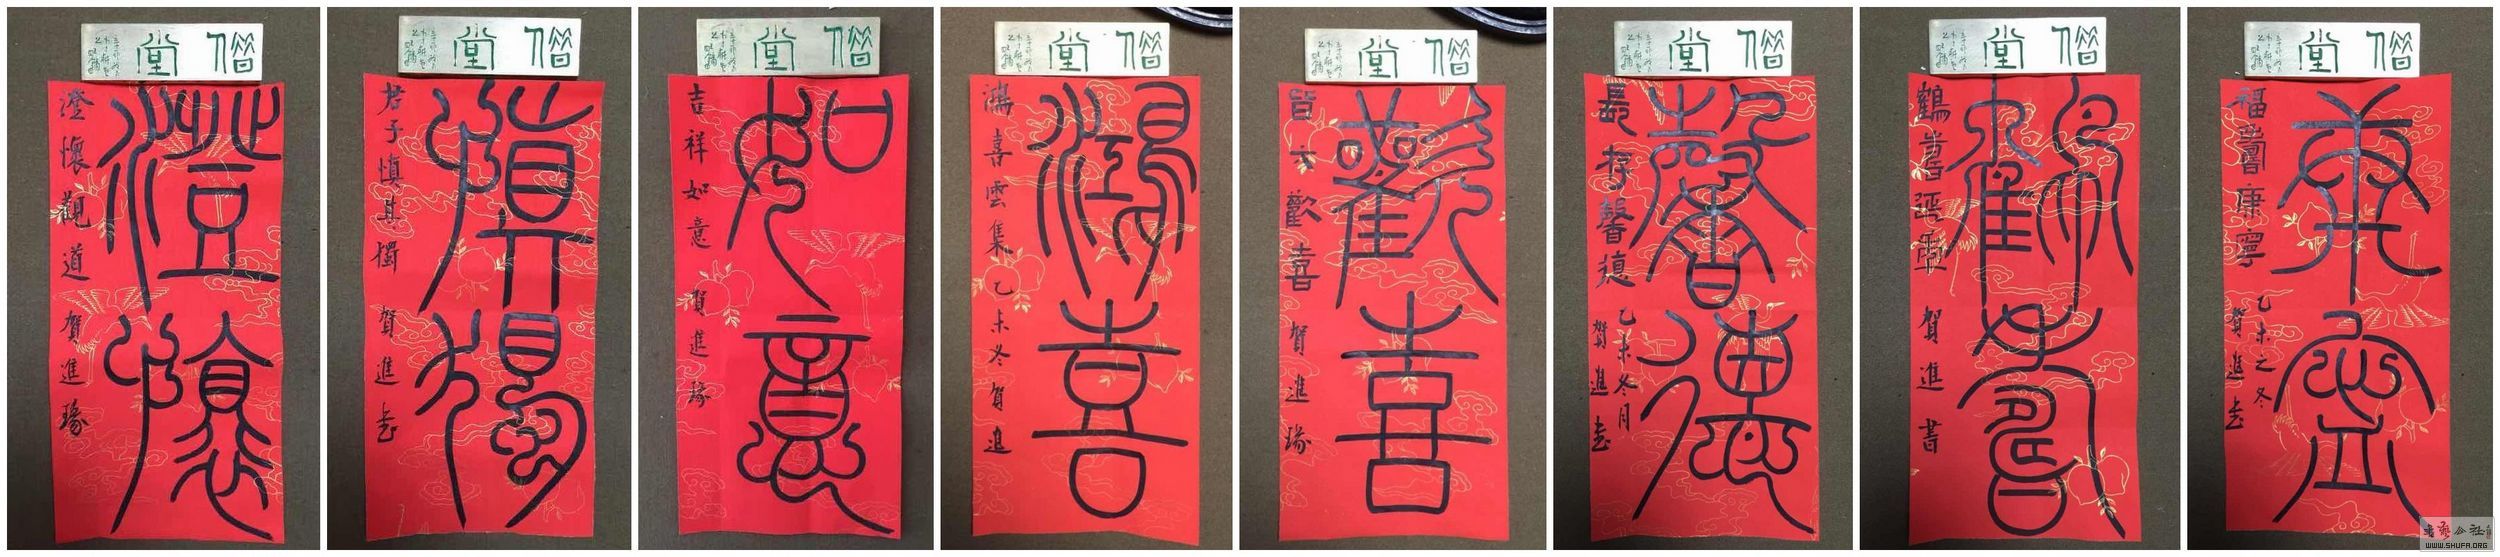 僭堂
澄懷
澄懷觀道 賀進瑑
僭堂
慎獨
君子慎其獨 賀進書
僭堂
如意
吉祥如意 賀進瑑
僭堂
鴻喜
鴻喜雲集 乙未冬賀進
僭堂
歡喜
皆大歡喜 賀進瑑
僭堂
馨德
長存馨德
乙未冬月
賀進書
僭堂
鶴壽
鶴壽 賀進書
僭堂
康寧
福壽康寧 乙未之冬
賀進書
書藝公社
WWW.SHUFA.ORG